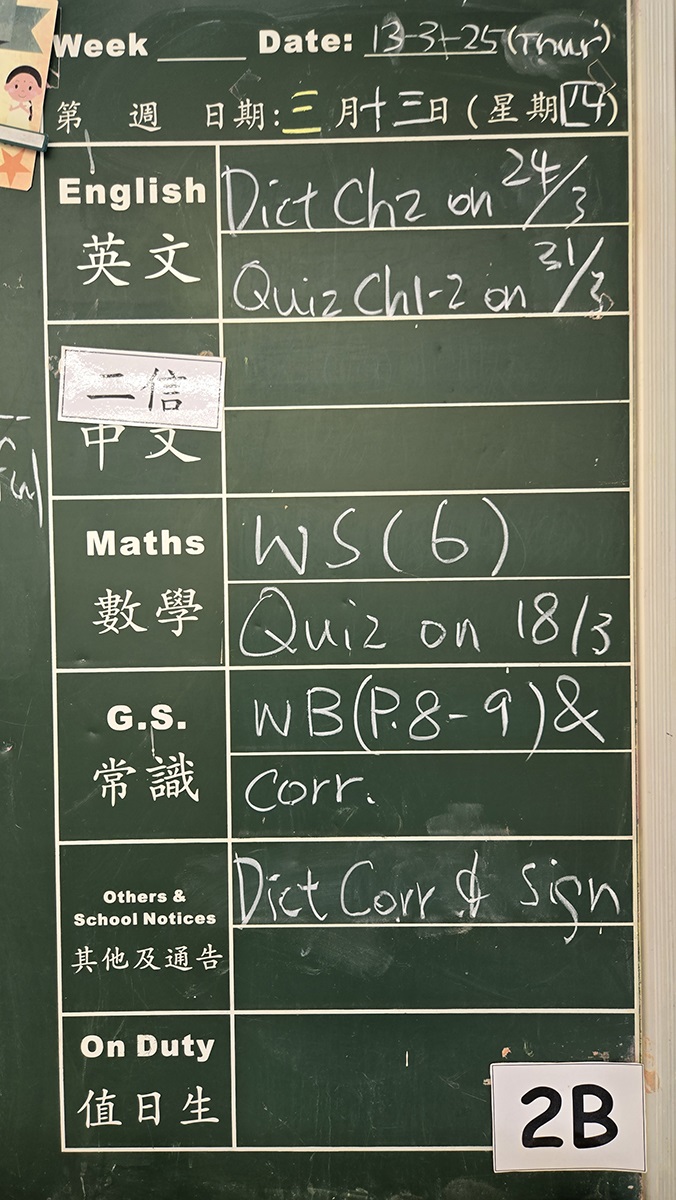 Week Date: 13-3-25 (Thur)
第 週 日期: 三月十三日 (星期四)
English Dict Ch2 on 24/3
英文 Quiz Ch1-2 on 31/3
二信
中文
Maths WS(6)
數學 Quiz on 18/3
G.S. WB(P.8-9)&
常識 Corr.
Others & Dict Corr & Sign
School Notices
其他及通告
On Duty
值日生
2B